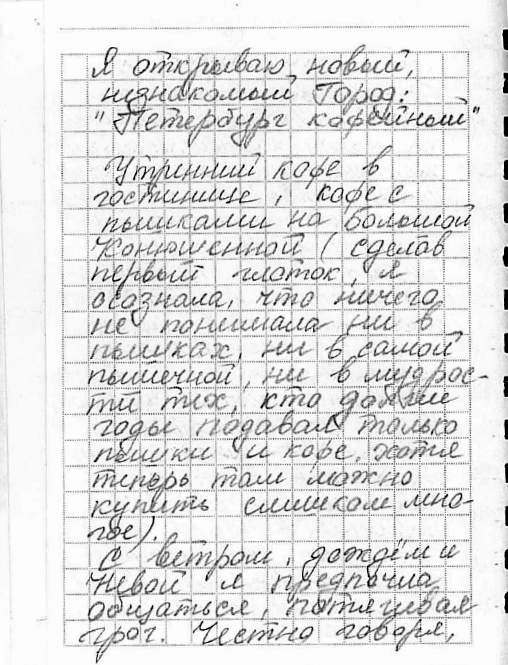 Я открываю новый,
незнакомый Город:
"Петербург кофейный"
Утренний кофе в
гостинице, кофе с
пышками на Большой
Конюшенной (сделав
первый глоток, я
осознала, что ничего
не понимала ни в
пышках, ни в самой
пышечной, ни в мудрос-
ти тех, кто долгие
годы подавал только
пышки и кофе, хотя
теперь там можно
купить слишком мно-
гое).
С ветром, дождём и
Невой я предпочла
общаться, потягивая
грог. Честно говоря,